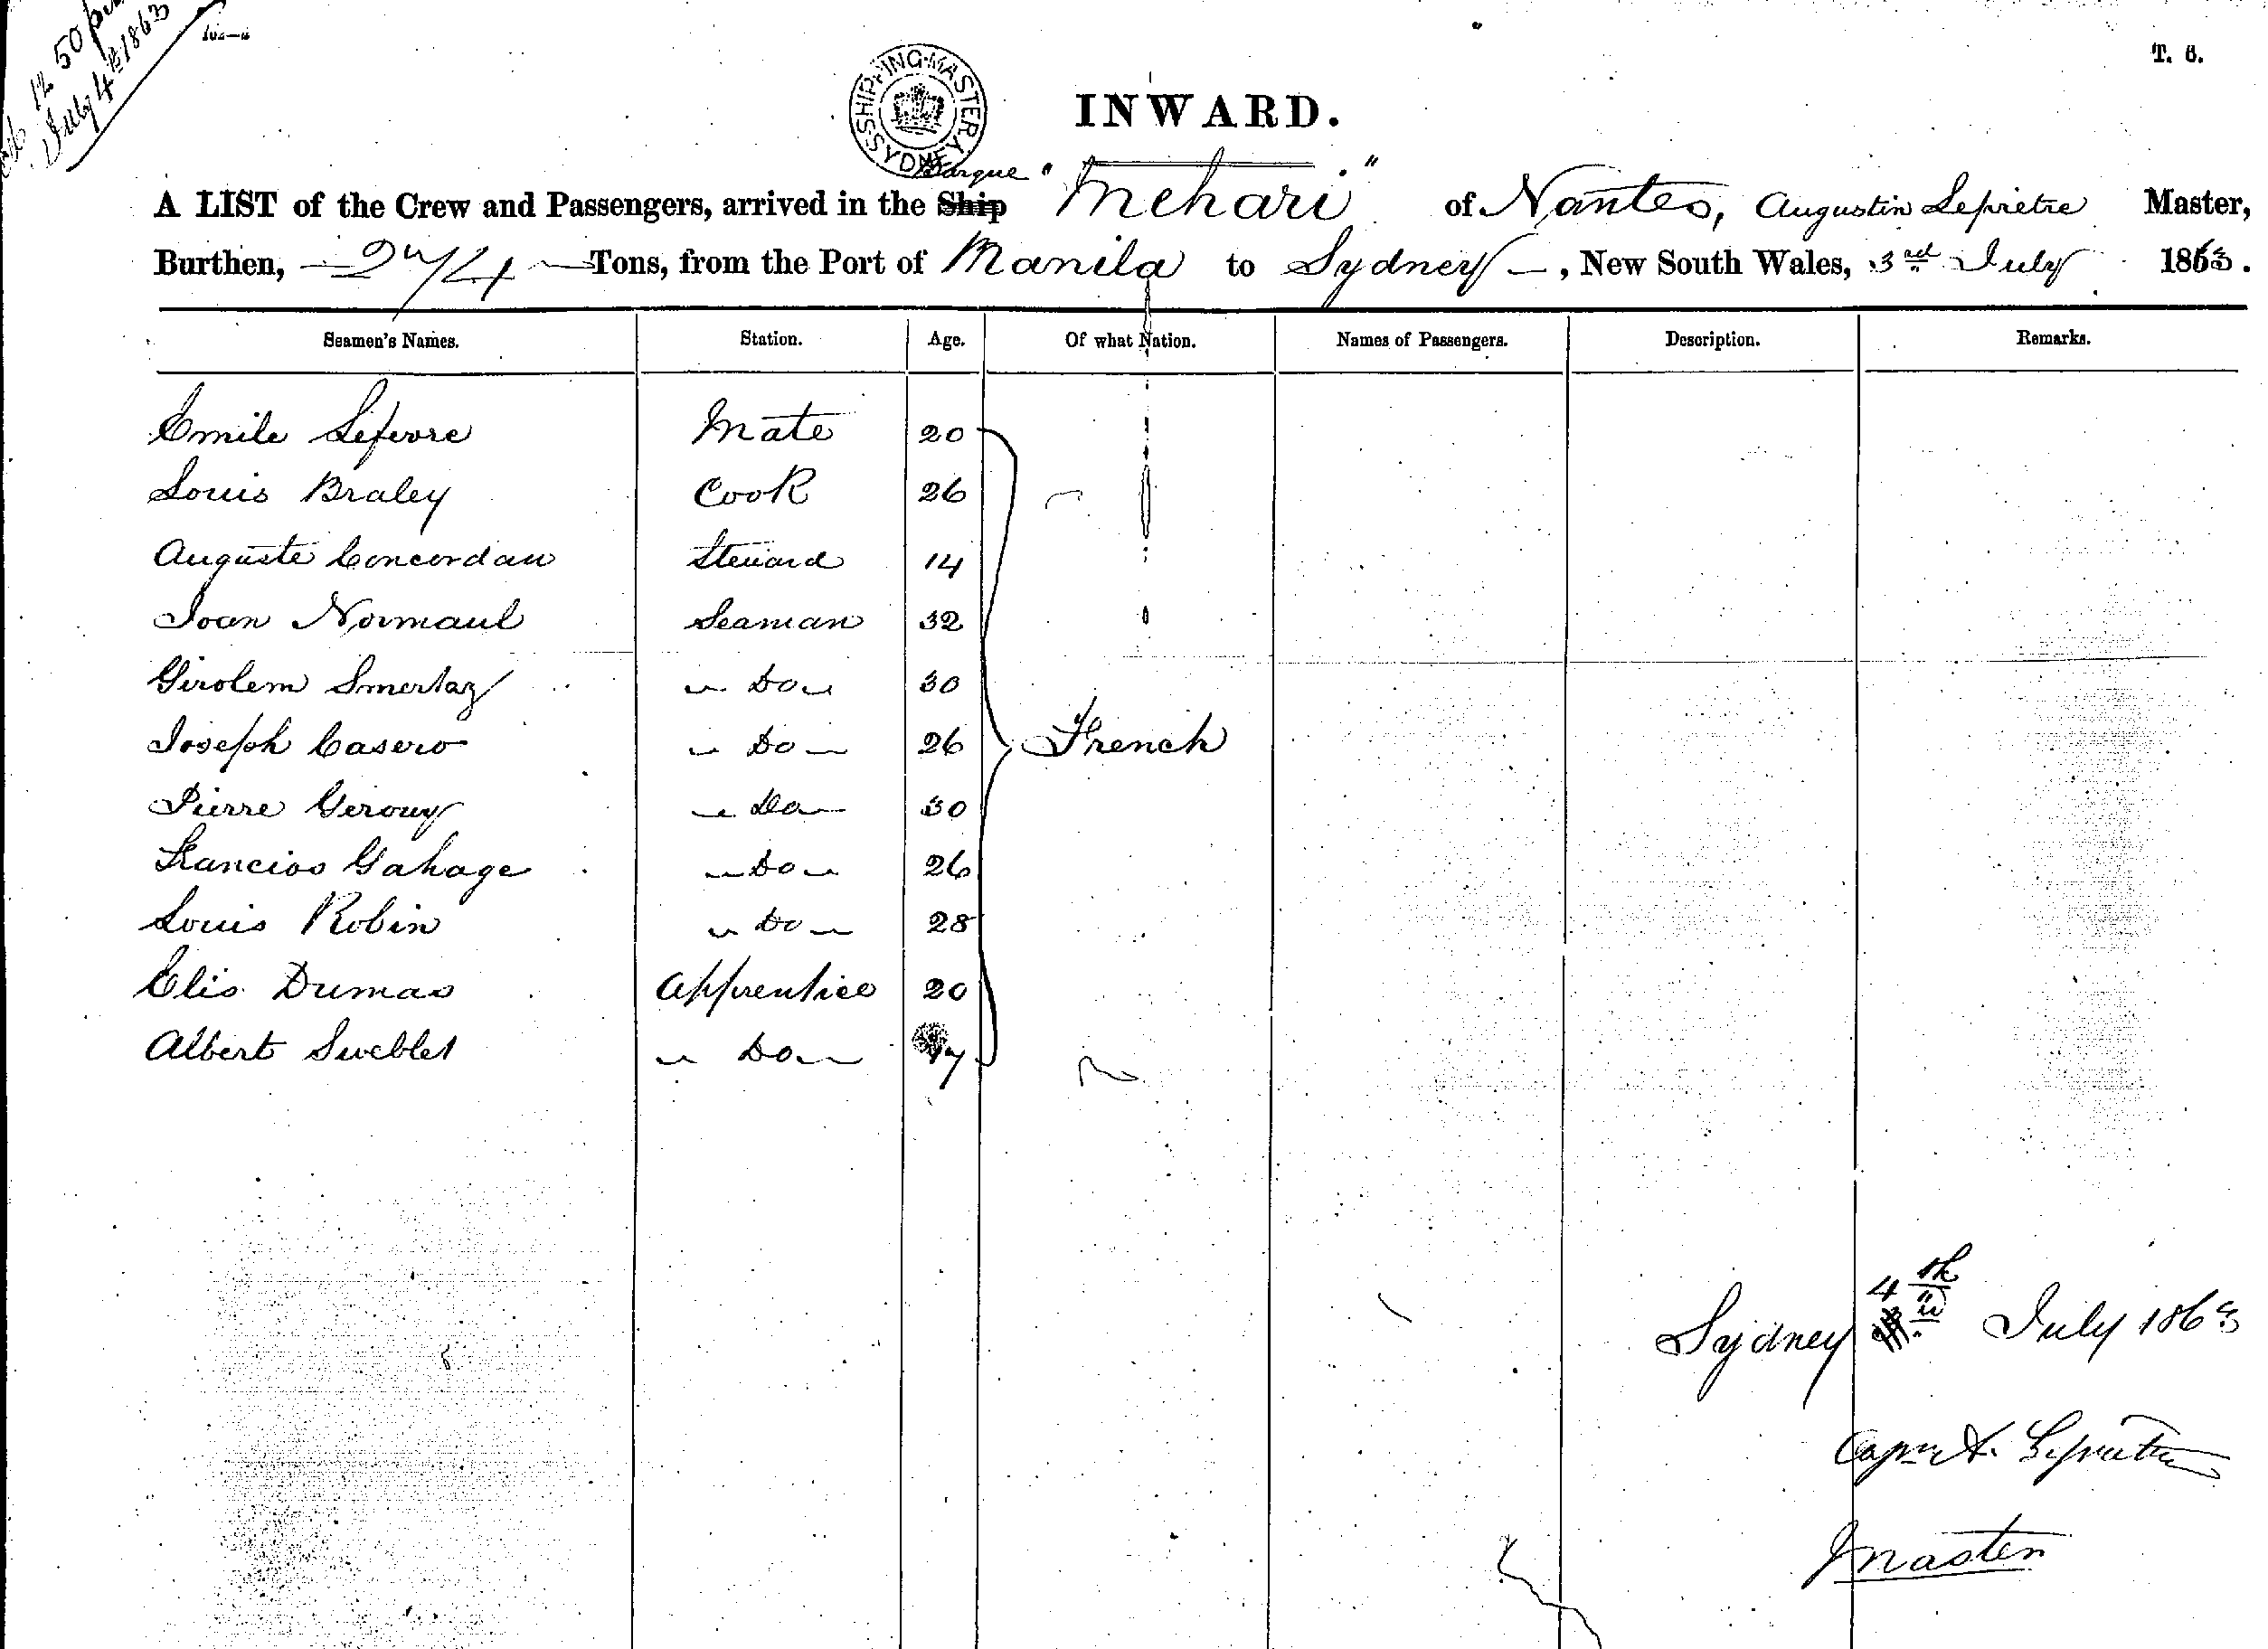 12 50 pm
July 4th 1863
T. 6.
SHIPPING MASTER SYDNEY
INWARD.
A LIST of the Crew and Passengers, arrived in the Ship Barque "Mehari" of Nantes, Augustin Lepretre Master,
Burthen, Tons, from the Port of Manila to Sydney —, New South Wales, 3rd July 1863.
Seamen's Names. Station. Age. Of what Nation. Names of Passengers. Description. Remarks.
Emile Lefevre Mate 20
Louis Braley Cook 26
Auguste Concordan Steward 14
Joan Normaul Seaman 32
Girolem Smertaz " Do " 30
Joseph Casero " Do " 26 French
Pierre Gerouy " Do " 30
Francios Gahage " Do " 26
Louis Robin " Do " 28
Elis Dumas Apprentice 20
Albert Sweblet " Do " 17
Sydney 4th July 1863
Capn A. Lepretre
Master